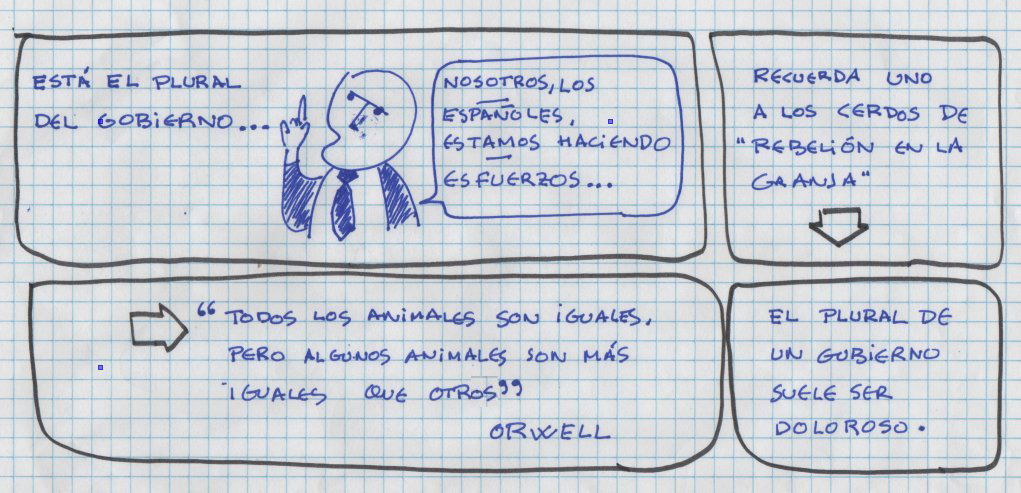 ESTÁ EL PLURAL
DEL GOBIERNO...
NOSOTROS, LOS
ESPAÑOLES,
ESTAMOS HACIENDO
ESFUERZOS...
RECUERDA UNO
A LOS CERDOS DE
"REBELIÓN EN LA
GRANJA"
"TODOS LOS ANIMALES SON IGUALES,
PERO ALGUNOS ANIMALES SON MÁS
IGUALES QUE OTROS"
ORWELL
EL PLURAL DE
UN GOBIERNO
SUELE SER
DOLOROSO.